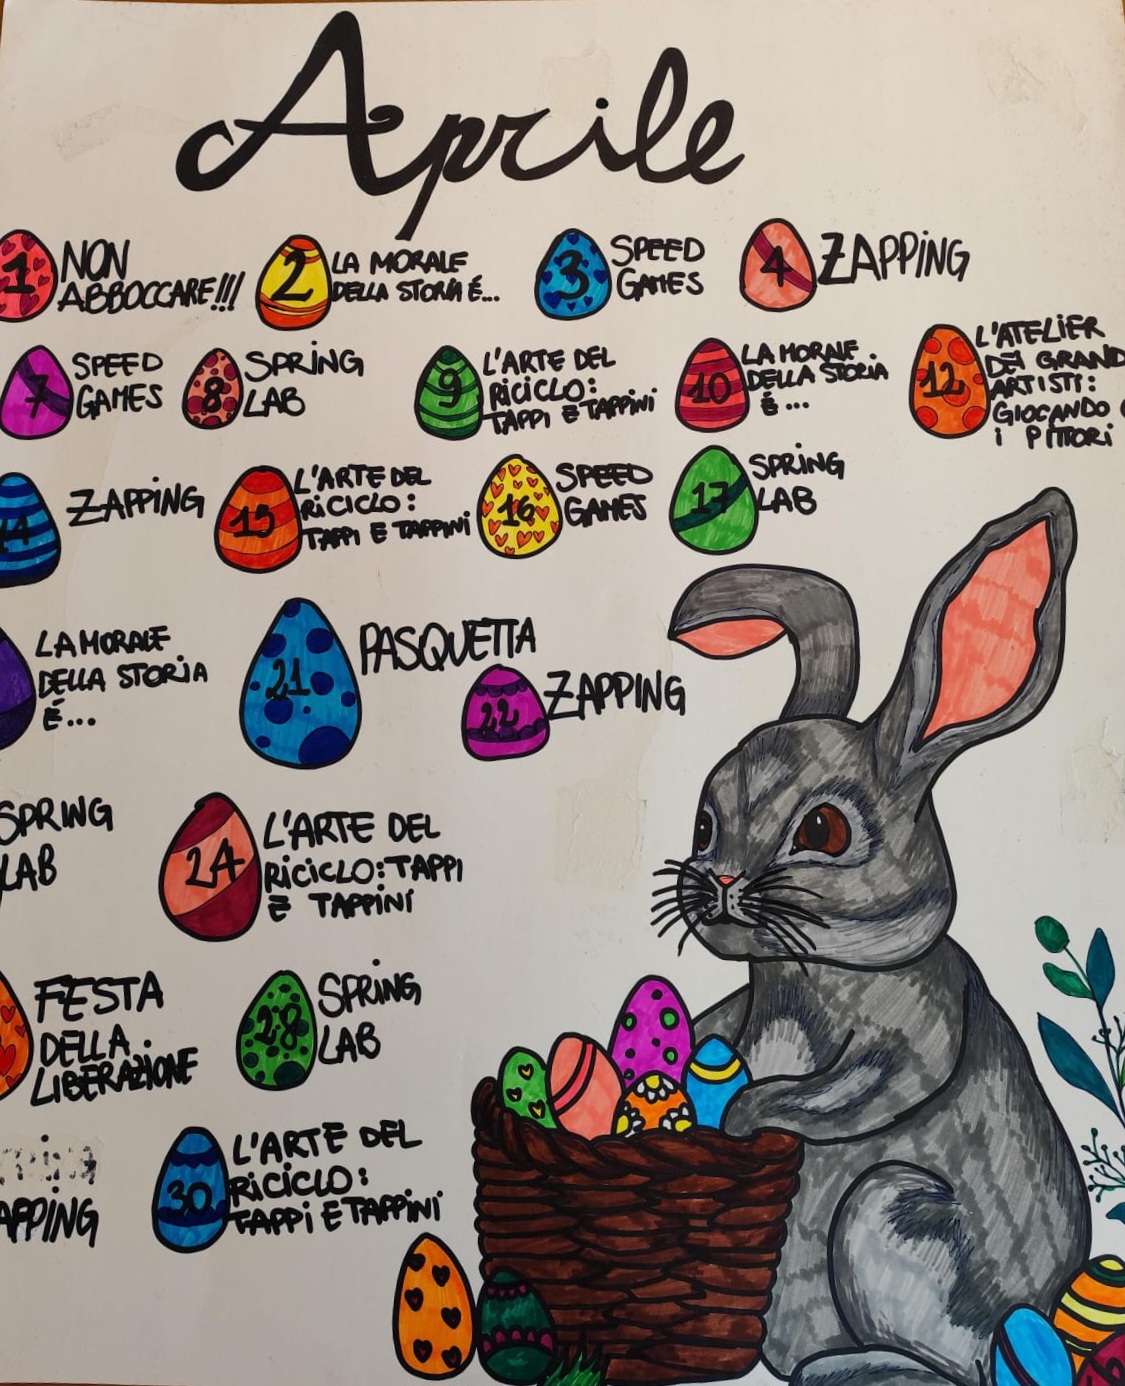 Aprile
1 NON
ABBOCCARE!!!
2 LA MORALE
DELLA STORIA É...
3 SPEED
GAMES
4 ZAPPING
7 SPEED
GAMES
8 SPRING
LAB
9 L'ARTE DEL
RICICLO:
TAPPI E TAPPINI
10 LA MORALE
DELLA STORIA
É...
12 L'ATELIER
DEI GRAND
ARTISTI:
GIOCANDO
I PITTORI
14 ZAPPING
15 L'ARTE DEL
RICICLO:
TAPPI E TAPPINI
16 SPEED
GAMES
17 SPRING
LAB
LA MORALE
DELLA STORIA
É...
21 PASQUETTA
22 ZAPPING
SPRING
LAB
24 L'ARTE DEL
RICICLO: TAPPI
E TAPPINI
FESTA
DELLA
LIBERAZIONE
28 SPRING
LAB
APPING
30 L'ARTE DEL
RICICLO:
TAPPI E TAPPINI